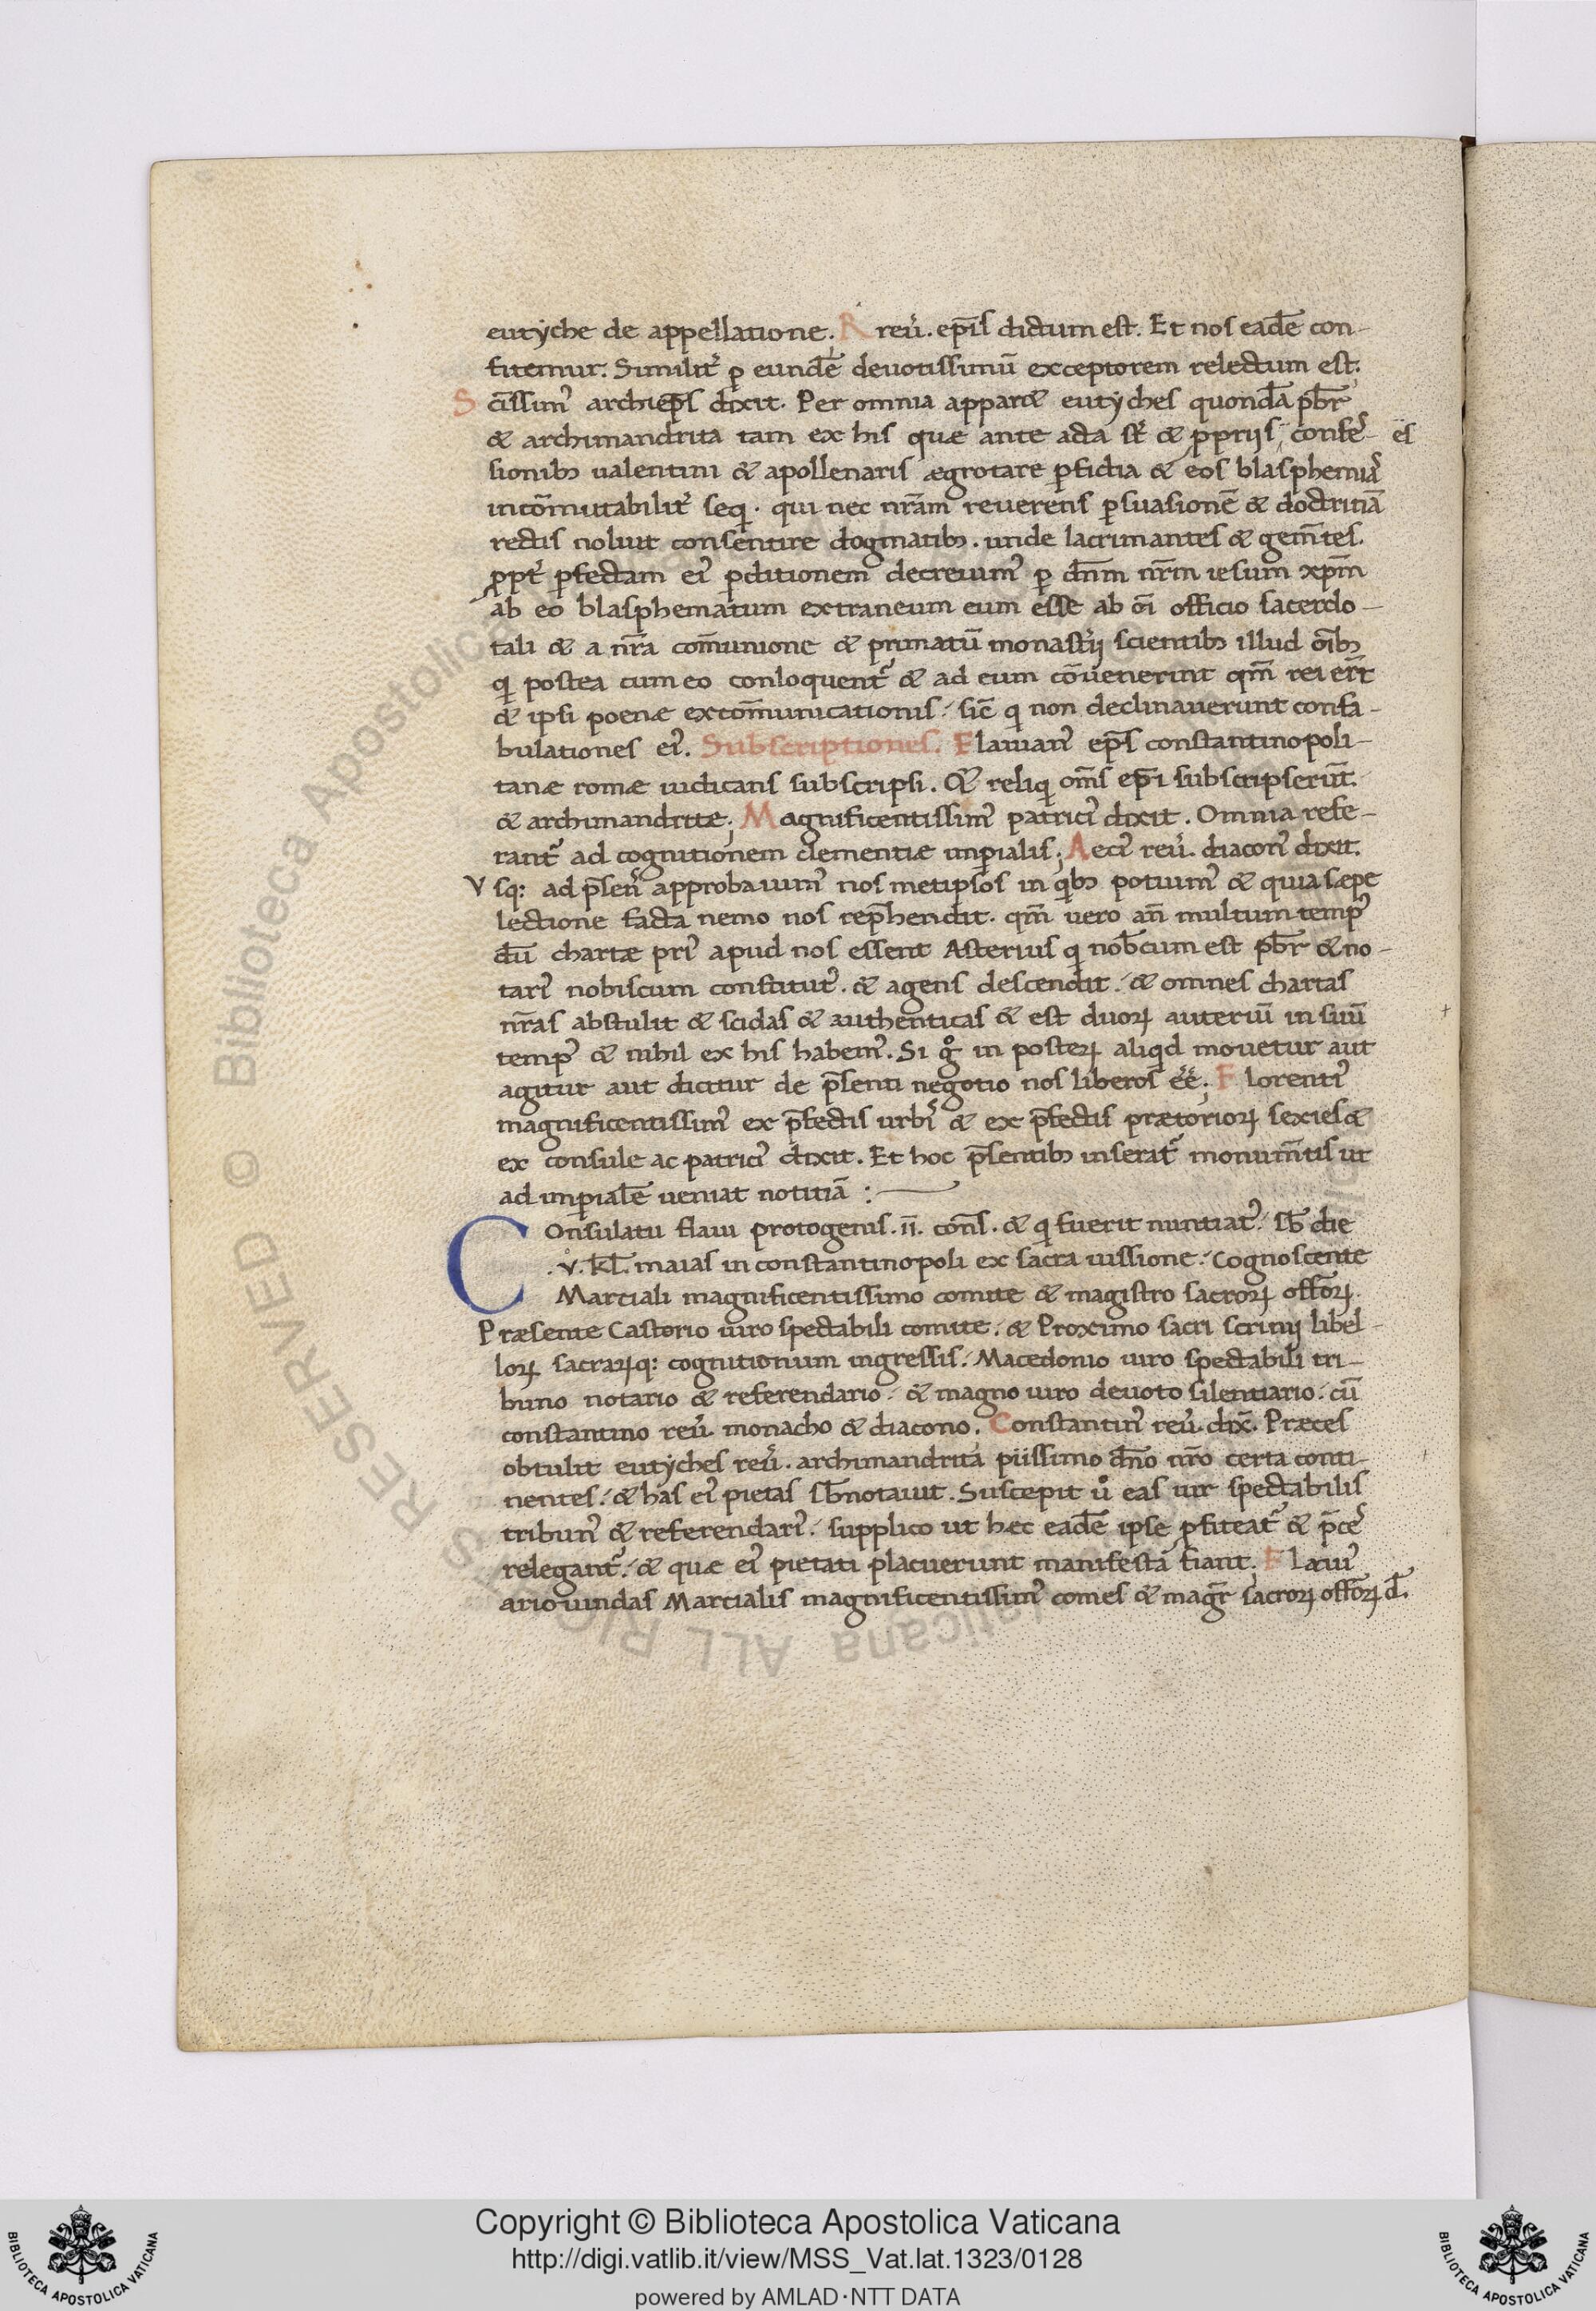 eutyche de appellatione. R reu̓. ep̄is dictum est. Et nos eadē con-
fitemur. Similit᷒ ꝑ eundē deuotissimū exceptorem relectum est.
Sc̄issim᷒ archiep̄s dixit. Per omnia apparꝫ eutyches quondā pb̄r
& archimandrita tam ex his quæ ante acta st̄ & ꝓprijs confes- es
sionibꝫ ualentini & apollenaris ægrotare ꝑfidia & eos blasphemias
incōmutabilit᷒ seqi. qui nec nr̄am reuerens ꝑsuasionē & doctrinā
rectis noluit consentire dogmatibꝫ. unde lacrimantes & gem̄tes.
ꝓpt᷒ ꝑfectam ei᷒ ꝑditionem decreuim᷒ ꝑ dn̄m nr̄m iesum xp̄m
ab eo blasphematum extraneum eum esse ab oi̅ officio sacerdo-
tali & a nr̄a com̄unione & primatū monast̓ij scientibꝫ illud oi̅bꝫ
qi postea cum eo conloquent᷒ & ad eum cōuenerint qm̄ rei er̄t
& ipsi poenæ excom̄unicationis. sic̄ qi non declinauerunt confa-
bulationes ei᷒. Subscriptiones. Flauian᷒ ep̄s constantinopoli-
tanæ romæ iudicans subscripsi. Et reliqi om̄s ep̄i subscripserūt.
& archimandritæ. Magnificentissim᷒ patrici᷒ dixit. Omnia refe-
rant᷒ ad cognitionem clementiæ imꝑialis. Aeci᷒ reu̓. diacon᷒ dixit.
Vsq: ad p̄sen᷒ approbauim᷒ nos metipsos in qibꝫ potuim᷒ & quia sæpe
lectione facta nemo nos rep̄hendit. qm̄ uero an̄ multum temp᷒
dū chartæ pri᷒ apud nos essent Asterius qi nob̄cum est pb̄r & no-
tari᷒ nobiscum constitut᷒. & agens descendit. & omnes chartas
nr̄as abstulit & scidas & authenticas & est duoꝝ auteriū in suū
temp᷒ & nihil ex his habem᷒. Si gͦ in posteꝝ aliqid mouetur aut
agitur aut dicitur de p̄senti negotio nos liberos ēē. Florenti᷒
magnificentissim᷒ ex p̄fectis urbis & ex p̄fectis prætorioꝝ sexies &
ex consule ac patrici᷒ dixit. Et hoc p̄sentibꝫ inserat᷒ monum̄tis ut
ad imꝑialē ueniat notitiā :—
Consulatu flaui protogenis. ii. con̄s. & qi fuerit nuntiat᷒. sb̄ die
.v. kl̄. maias in constantinopoli ex sacra iussione. Cognoscente
Martiali magnificentissimo comite & magistro sacroꝝ offoꝝ.
Præsente Castorio uiro spectabili comite. & Proximo sacri scrinij libel-
loꝝ sacraꝝq: cognitionum ingressis. Macedonio uiro spectabili tri-
buno notario & referendario. & magno uiro deuoto silentiario. cū
constantino reu̓. monacho & diacono. Constantin᷒ reu̓. dix̄. Præces
obtulit eutyches reu̓. archimandrita piissimo dn̄o nr̄o certa conti-
nentes. & has ei᷒ pietas sb̄notauit. Suscepit uͦ eas uir spectabilis
tribun᷒ & referendari᷒. supplico ut hec eadē ipse ꝓfiteat᷒ & p̄ces
relegant᷒. & quæ ei᷒ pietati placuerunt manifesta fiant. Flaui᷒
ariouindas Martialis magnificentissim᷒ comes & magr̄ sacroꝝ offoꝝ d̄.
Copyright © Biblioteca Apostolica Vaticana
http://digi.vatlib.it/view/MSS_Vat.lat.1323/0128
powered by AMLAD·NTT DATA
BIBLIOTECA APOSTOLICA VATICANA
BIBLIOTECA APOSTOLICA VATICANA